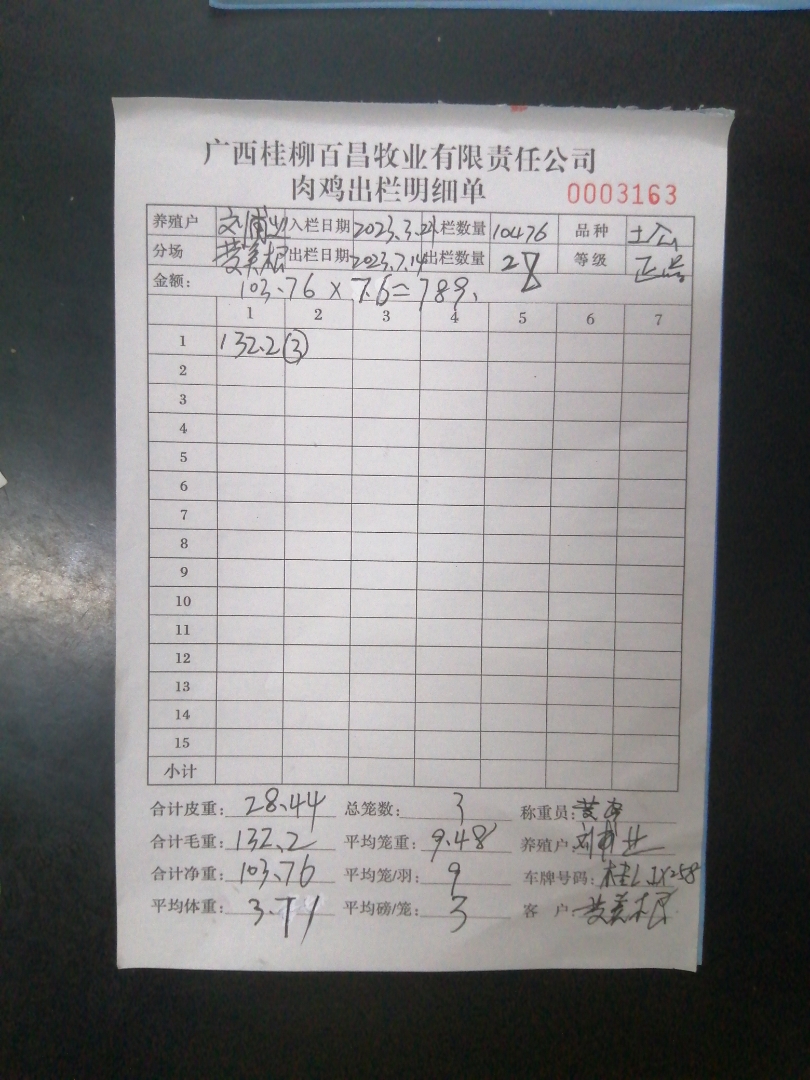 广西桂柳百昌牧业有限责任公司
肉鸡出栏明细单 0003163
养殖户 入栏日期 2023.3.21 入栏数量 10476 品种
分场 黄美根 出栏日期 2023.7.14 出栏数量 28 等级 正品
金额: 103.76 × 7.6 = 789.
1 2 3 4 5 6 7
1 132.2 ③
2
3
4
5
6
7
8
9
10
11
12
13
14
15
小计
合计皮重: 28.44 总笼数: 3 称重员:
合计毛重: 132.2 平均笼重: 9.48 养殖户:
合计净重: 103.76 平均笼/羽: 9 车牌号码:
平均体重: 3.71 平均磅/笼: 3 客户: 黄美根